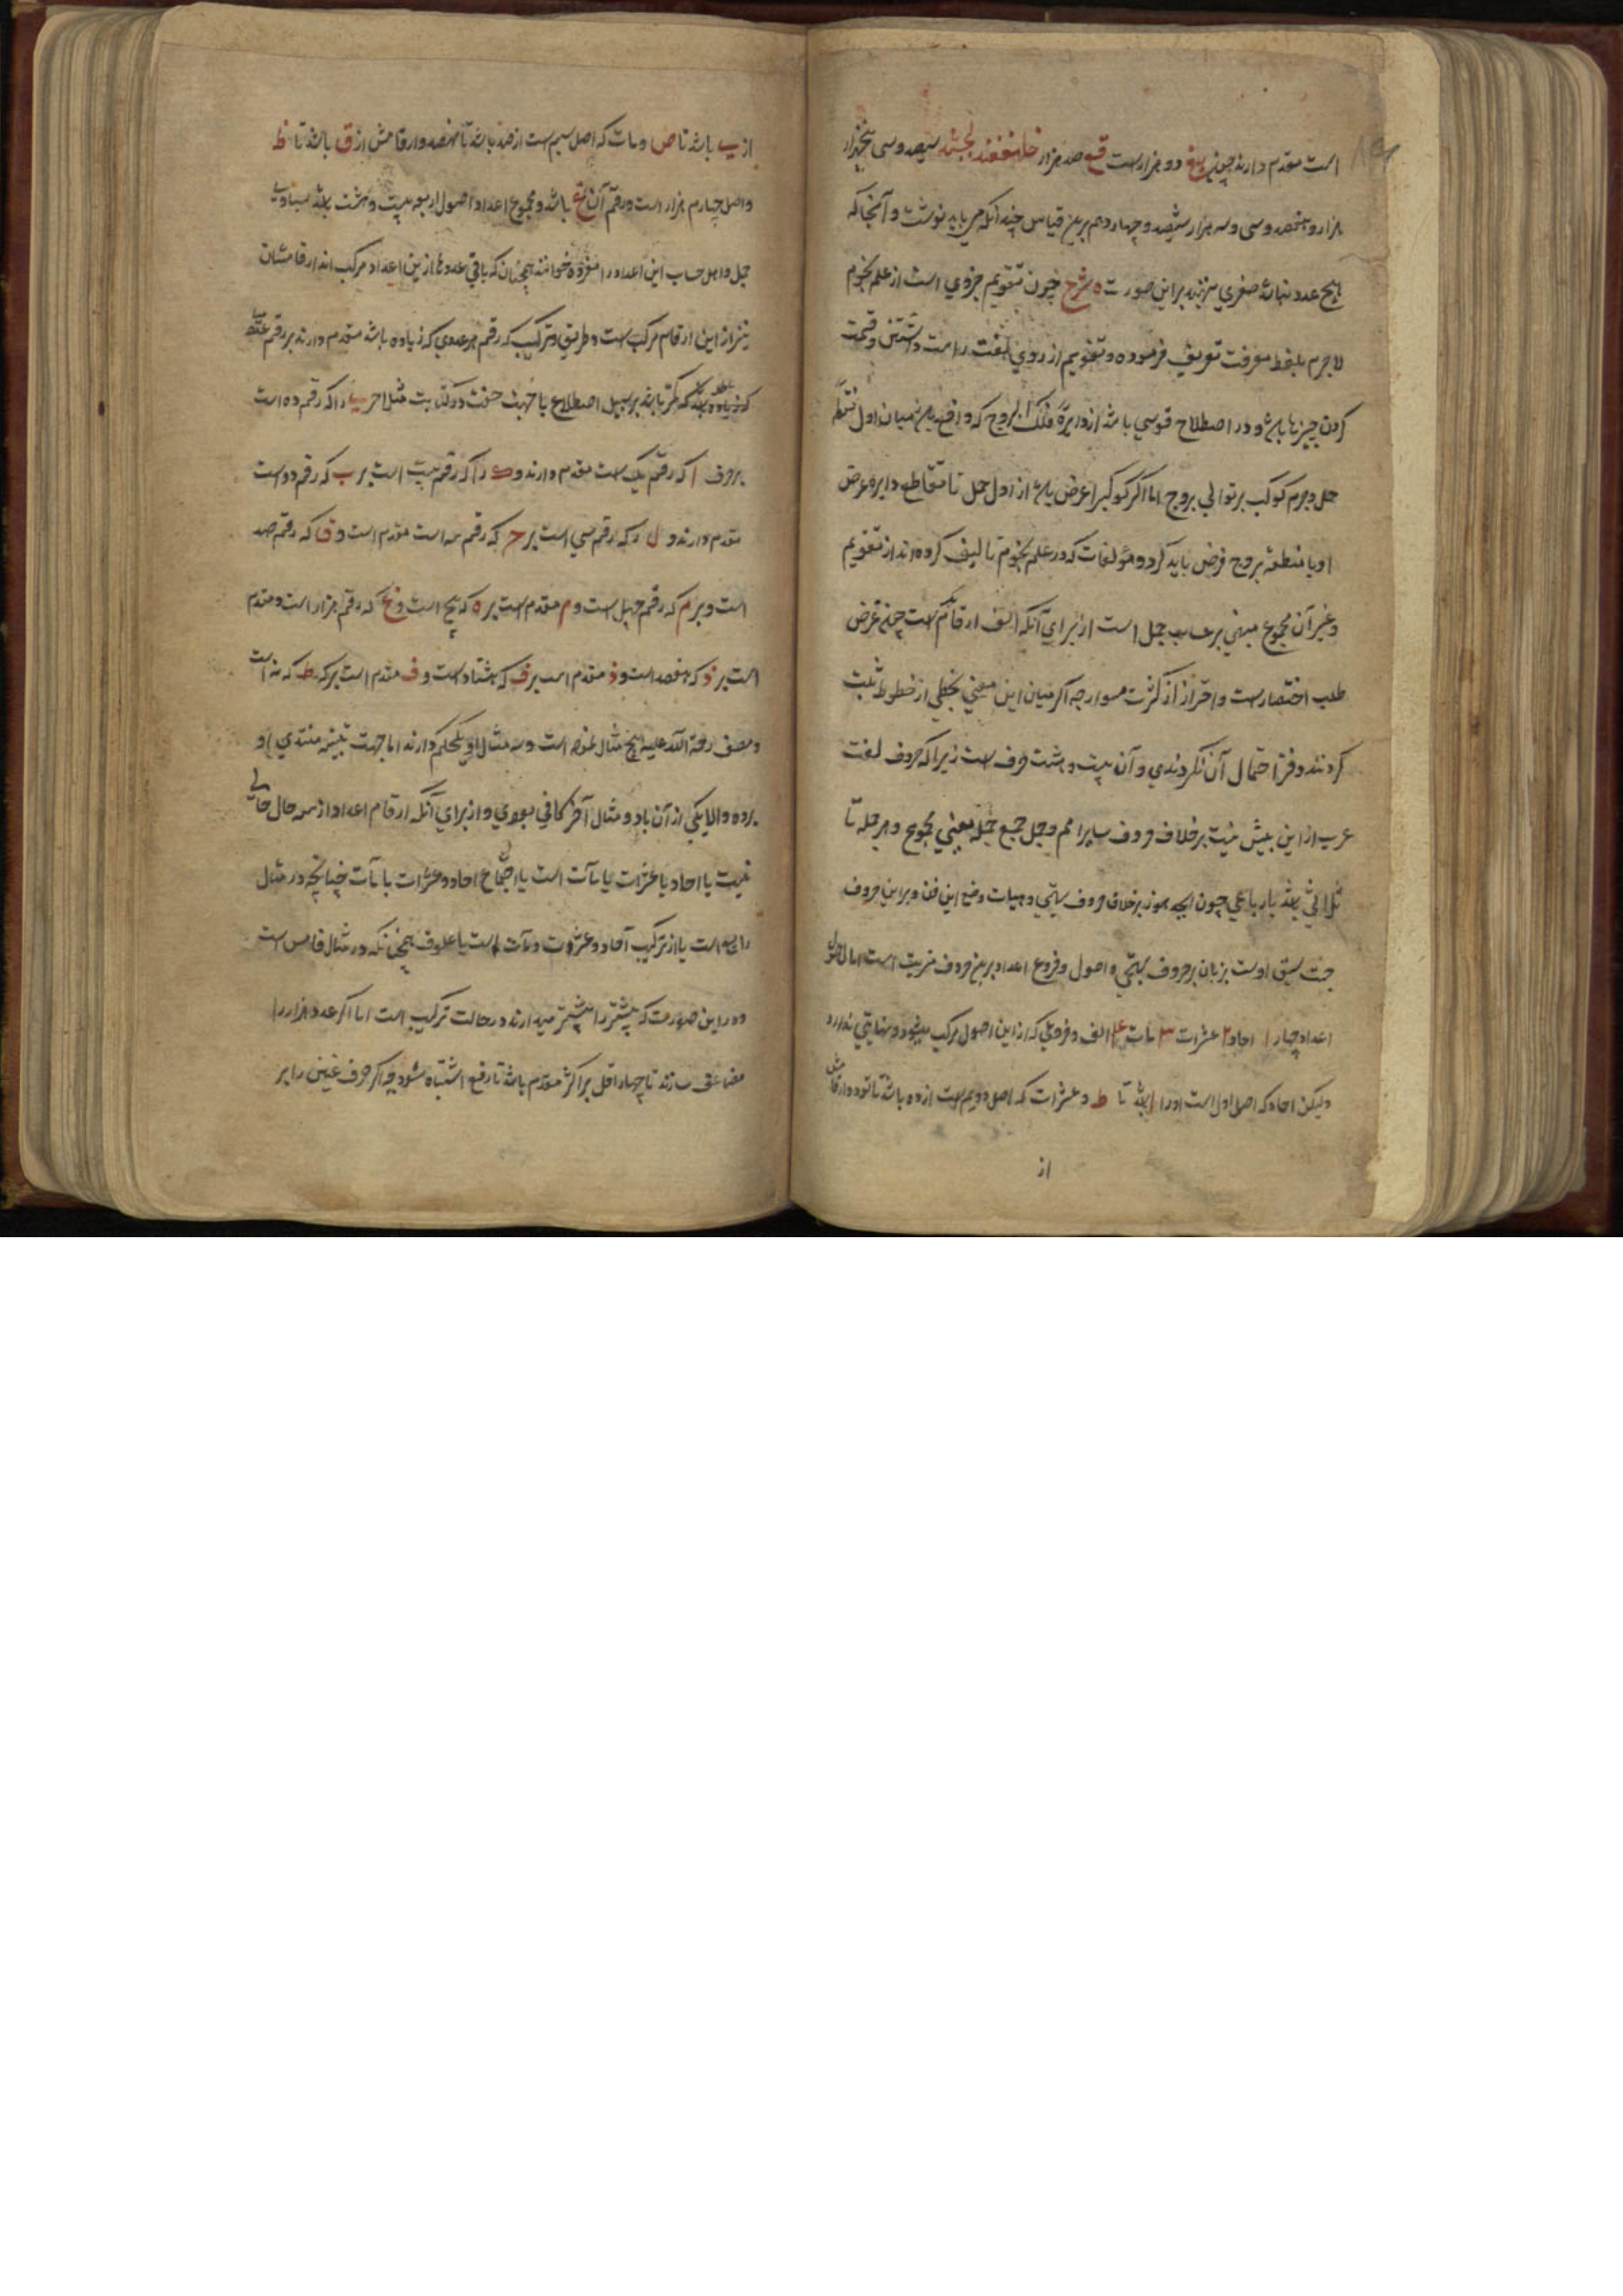 است مقدم دارند چون بغ دو هزارست قغ صد هزار سیصد وسی پنجهزار
هزار و هفتصد وسی وسه هزار ششصد و چهارده هم برین قیاس چندانکه می باید نوشت و آنجا که
هیچ عدد نباشد صفری نهند براین صورت ه شرح چون تقویم جزوی است از علم نجوم
لاجرم بلفظ معرفت تعریف فرموده و تقویم از روی لغت راست داشتن و قیمت
کردن چیزها باشد و در اصطلاح قوسی باشد از دایرة فلک البروج که واقع باشد میان اول نقطه
حمل و جرم کوکب بر توالی بروج اما اگر کوکب را عرض باشد از اول حمل تا تقاطع دایره عرض
او با منطقه بروج فرض باید کرد و مؤلفات که در علم نجوم تالیف کرده اند از تقویم
و غیر آن مجموع مبنی بر حساب جمل است از برای آنکه ارقام است چه غرض
طلب اختصارست و احتراز از کثرت سواد چه اگر میان این معنی بخطی از خطوط ثبت
کردندی دفتر احتمال آن نکردندی و آن بیست و هشت حرف است زیرا که حروف لغت
عرب از این بیش نیست بر خلاف حروف سایر امم و جمل جمع جمله یعنی مجموع و هر جمله تا
ثلاثی باشد یا رباعی چون ابجد هوز بر خلاف حروف تهجی و هیات وضع این فن و براین حروف
جهت سبق اوست بزبان بر حروف تهجی و اصول و فروع اعداد برین حروف مترتب است اما اصول
اعداد چهار ۱ احاد ۲ عشرات ۳ مات ۴ الف و فروعی که از این اصول مرکب میشود و نهایتی ندارد
ولیکن احاد که اصل اول است او را ا باشد تا ط و عشرات که اصل دویم است از ده باشد تا نود و ارقامش
از
از ی باشد تا ص و مات که اصل سیم است از صد باشد تا نهصد و ارقامش از ق باشد تا ظ
و اصل چهارم هزار است و رقم آن غ باشد و مجموع اعداد اصول اربعه بیست و هشت باشد
جمل و اهل حساب این اعداد را مفرده خوانند همچنان که باقی عددها ازین اعداد مرکب اند ارقامشان
نیز از این ارقام مرکب است و طریق ترکیب که رقم هر عددی که زیاده باشد مقدم دارند بر رقم
که کمتر باشد بر سبیل اصطلاح یا جهت خفت در کتابت مثلا حرف ی را که رقم ده است
بر حرف ا که رقم یک است مقدم دارند و ک را که رقم بیست است بر ب که رقم دو است
مقدم دارند و ل که رقم سی است بر ج که رقم سه است مقدم است و ق که رقم صد
است و بر م که رقم چهل است و م مقدم است بر ه که پنج است و غ که رقم هزار است و مقدم
است بر ذ که هفصد است و ذ مقدم است بر ف که هشتاد است و ف مقدم است بر ط که نه است
و مصنف رحمة الله علیه پنج مثال نموده است و سه مثال اول یک حکم دارند اما جهت تنبیه مبتدی او
بوده والا یکی از آن باد و مثال آخر کافی بودی و از برای آنکه ارقام اعداد از سه حال خالی
نیست یا احاد یا عشرات یا مآت است یا اجتماع احاد و عشرات با مآت چنانچه در مثال
رابع است یا از ترکیب آحاد و عشرات و مآت است با علوف همچنانکه در مثال خامس است
و در این صورت که بیشتر را پیشتر میدارند در حالت ترکیب است اما اگر عدد هزار را
مضاعف سازند تا چهار اقل بر اکثر مقدم باشد تا رفع اشتباه شود چه اگر حرف غین را بر